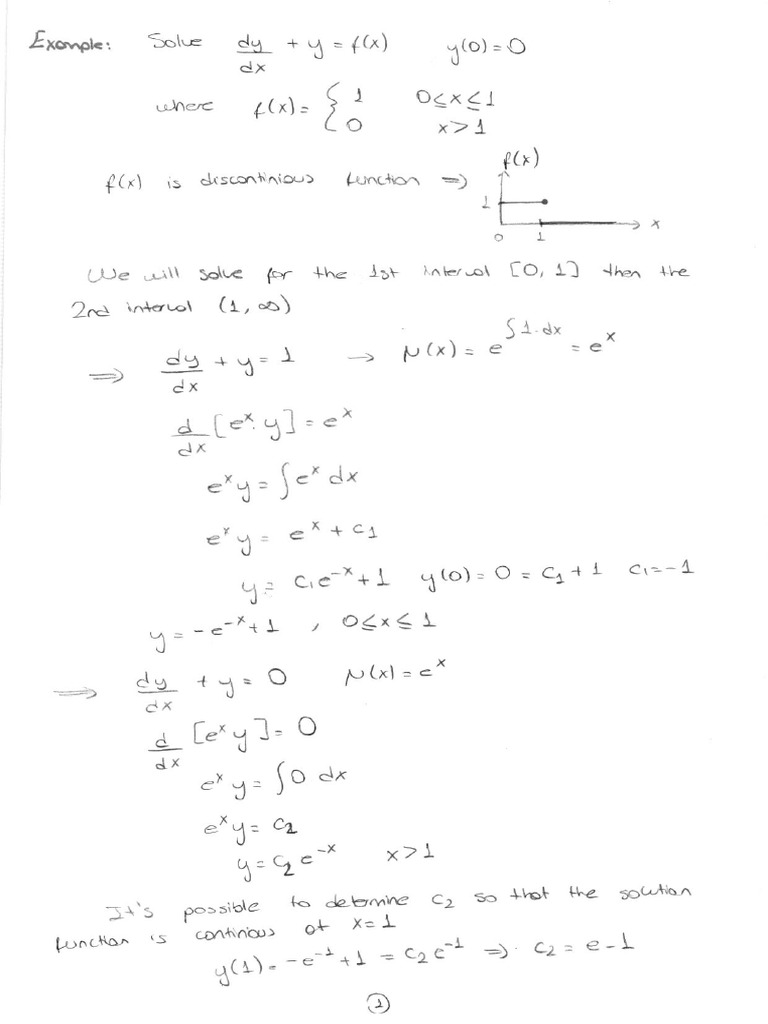 Example: Solve dy/dx + y = f(x) y(0) = 0
where f(x) = { 1 0≤x≤1
0 x>1
f(x)
f(x) is discontinious function ⇒
1
x
0 1
We will solve for the 1st interval [0, 1] then the
2nd interval (1, ∞)
⇒ dy/dx + y = 1 → μ(x) = e^∫1.dx = e^x
d/dx [e^x. y] = e^x
e^x y = ∫e^x dx
e^x y = e^x + c₁
y = c₁e^-x + 1 y(0) = 0 = c₁ + 1 c₁ = -1
y = -e^-x + 1 , 0≤x≤1
⇒ dy/dx + y = 0 μ(x) = e^x
d/dx [e^x y] = 0
e^x y = ∫0 dx
e^x y = c₂
y = c₂ e^-x x>1
It's possible to determine c₂ so that the solution
function is continious at x = 1
y(1) = -e^-1 + 1 = c₂ e^-1 ⇒ c₂ = e - 1
1